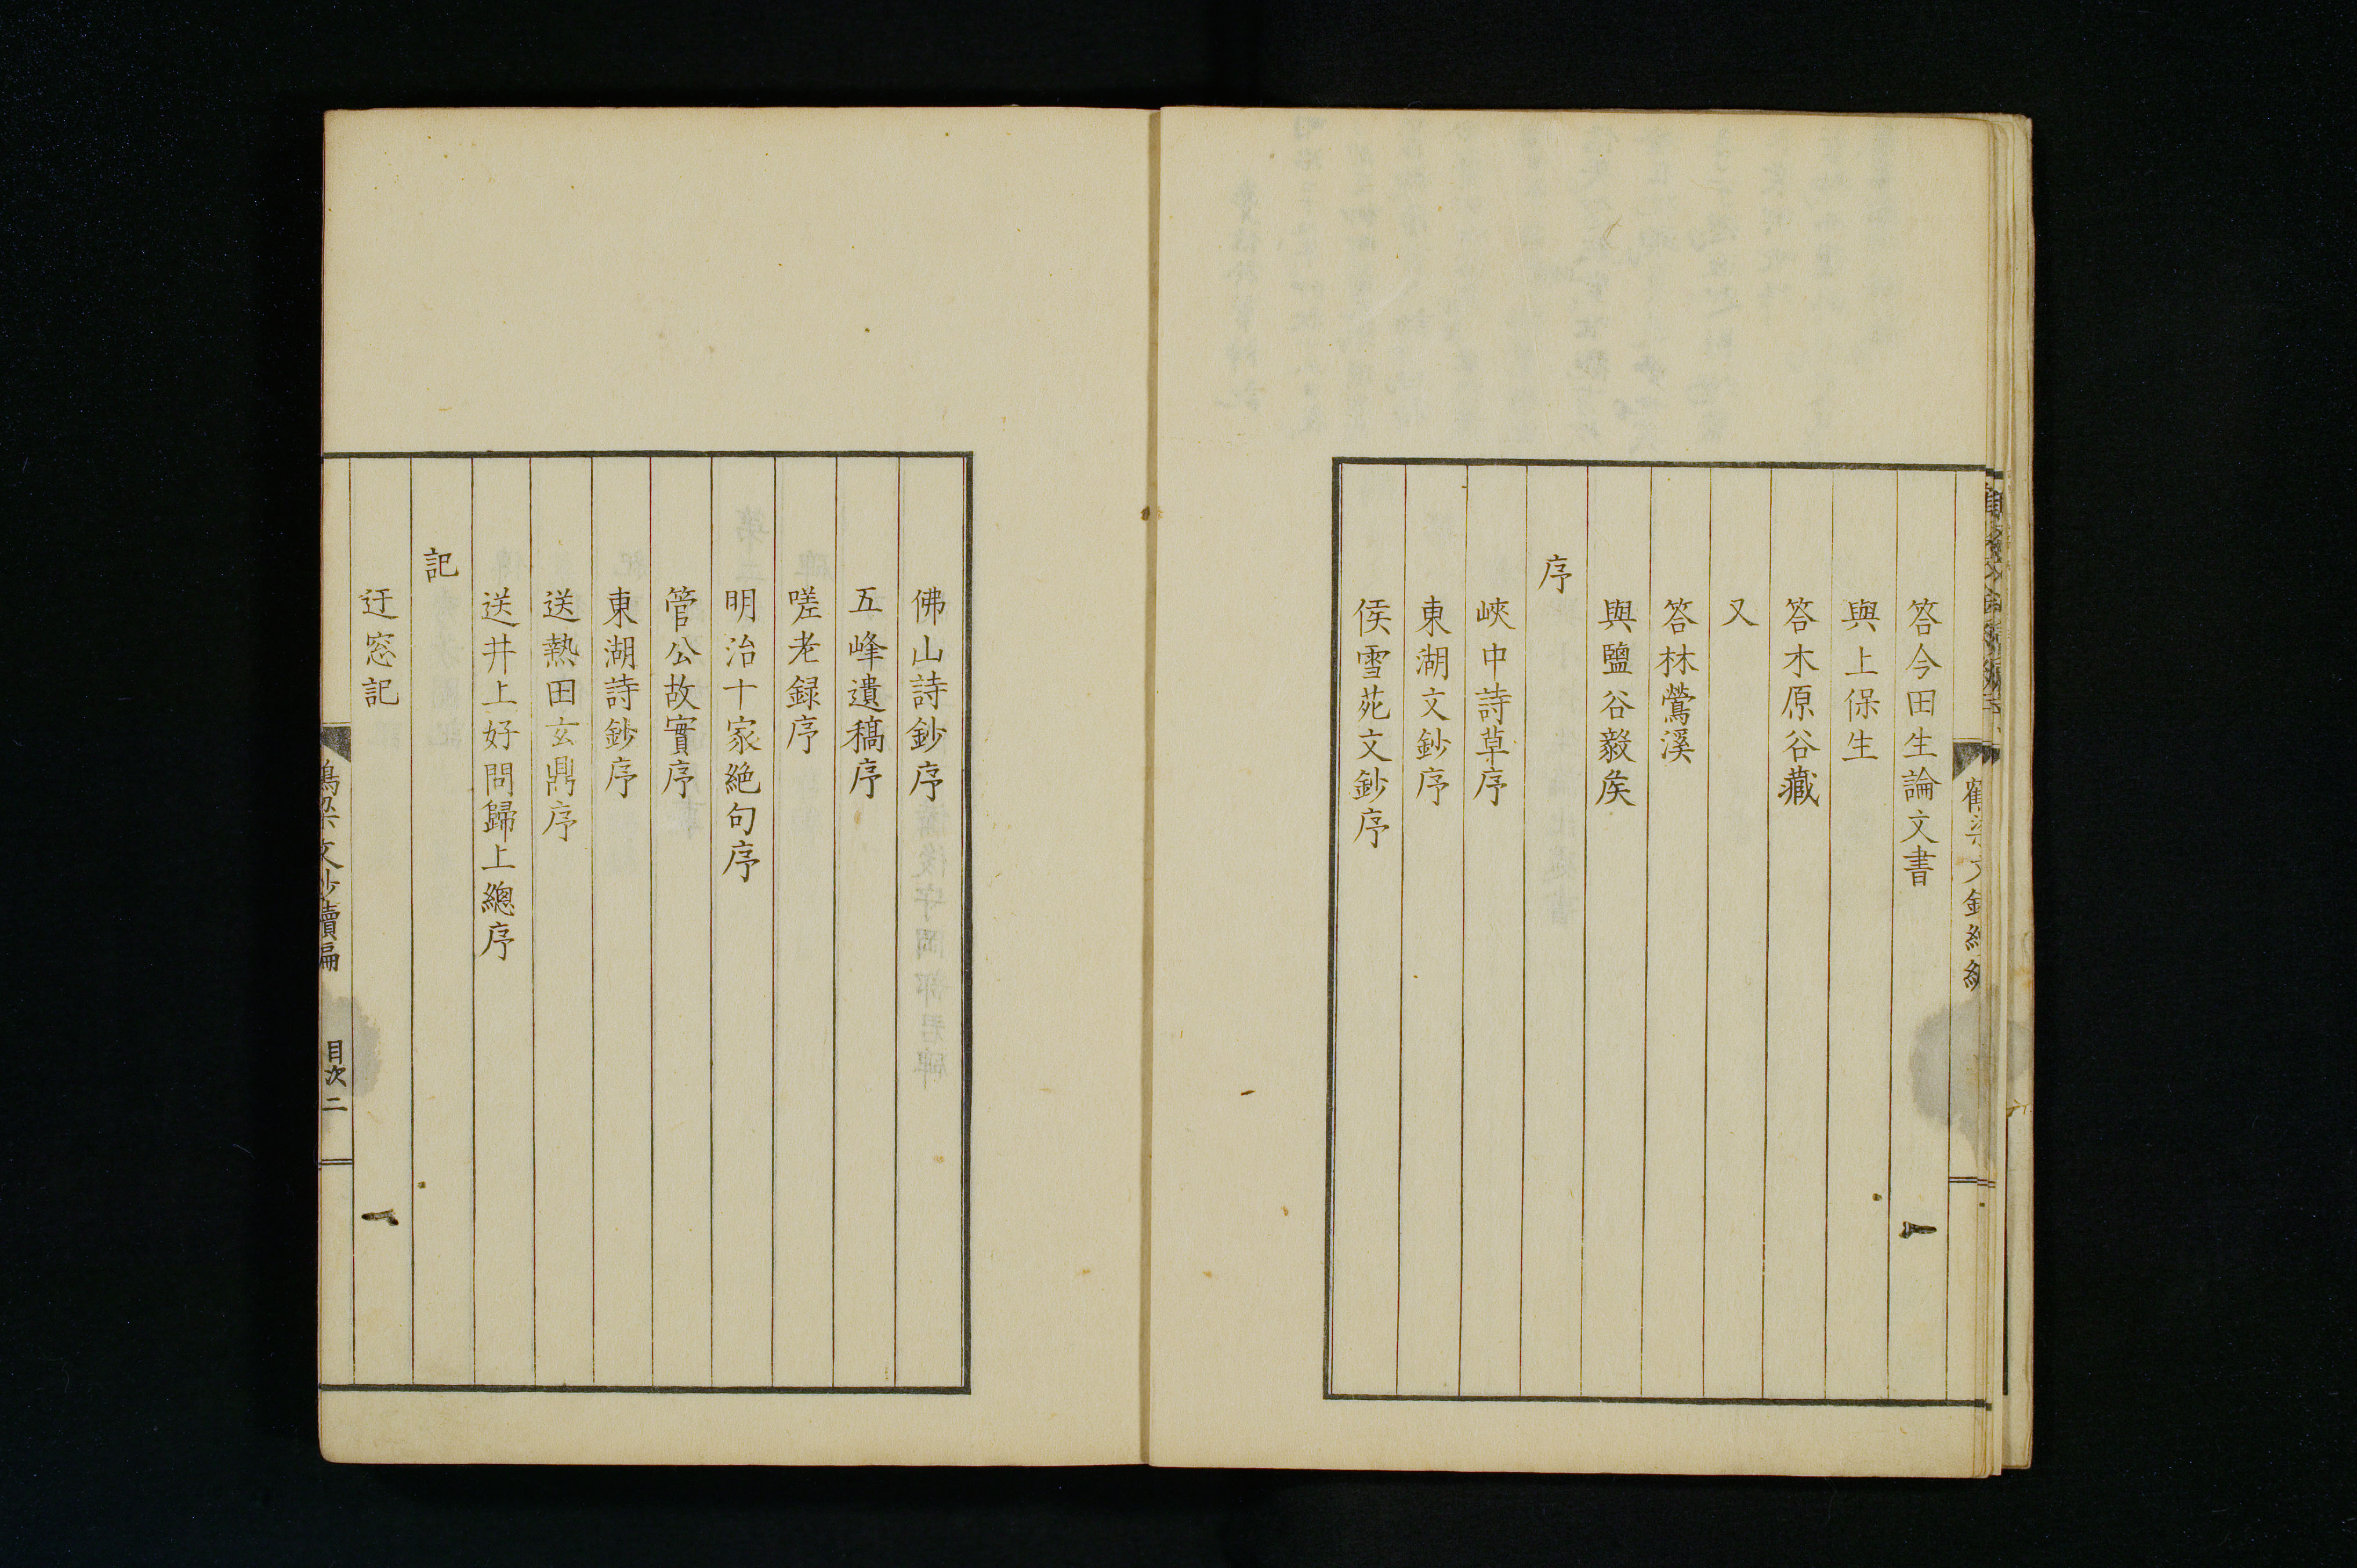 答今田生論文書
與上保生
答木原谷藏
又
答林鶯溪
與鹽谷毅矦
序
峽中詩草序
東湖文鈔序
侯雪苑文鈔序
佛山詩鈔序
五峰遺稿序
嗟老録序
明治十家絶句序
管公故實序
東湖詩鈔序
送熱田玄鼎序
送井上好問歸上總序
記
迂窓記
目次 二